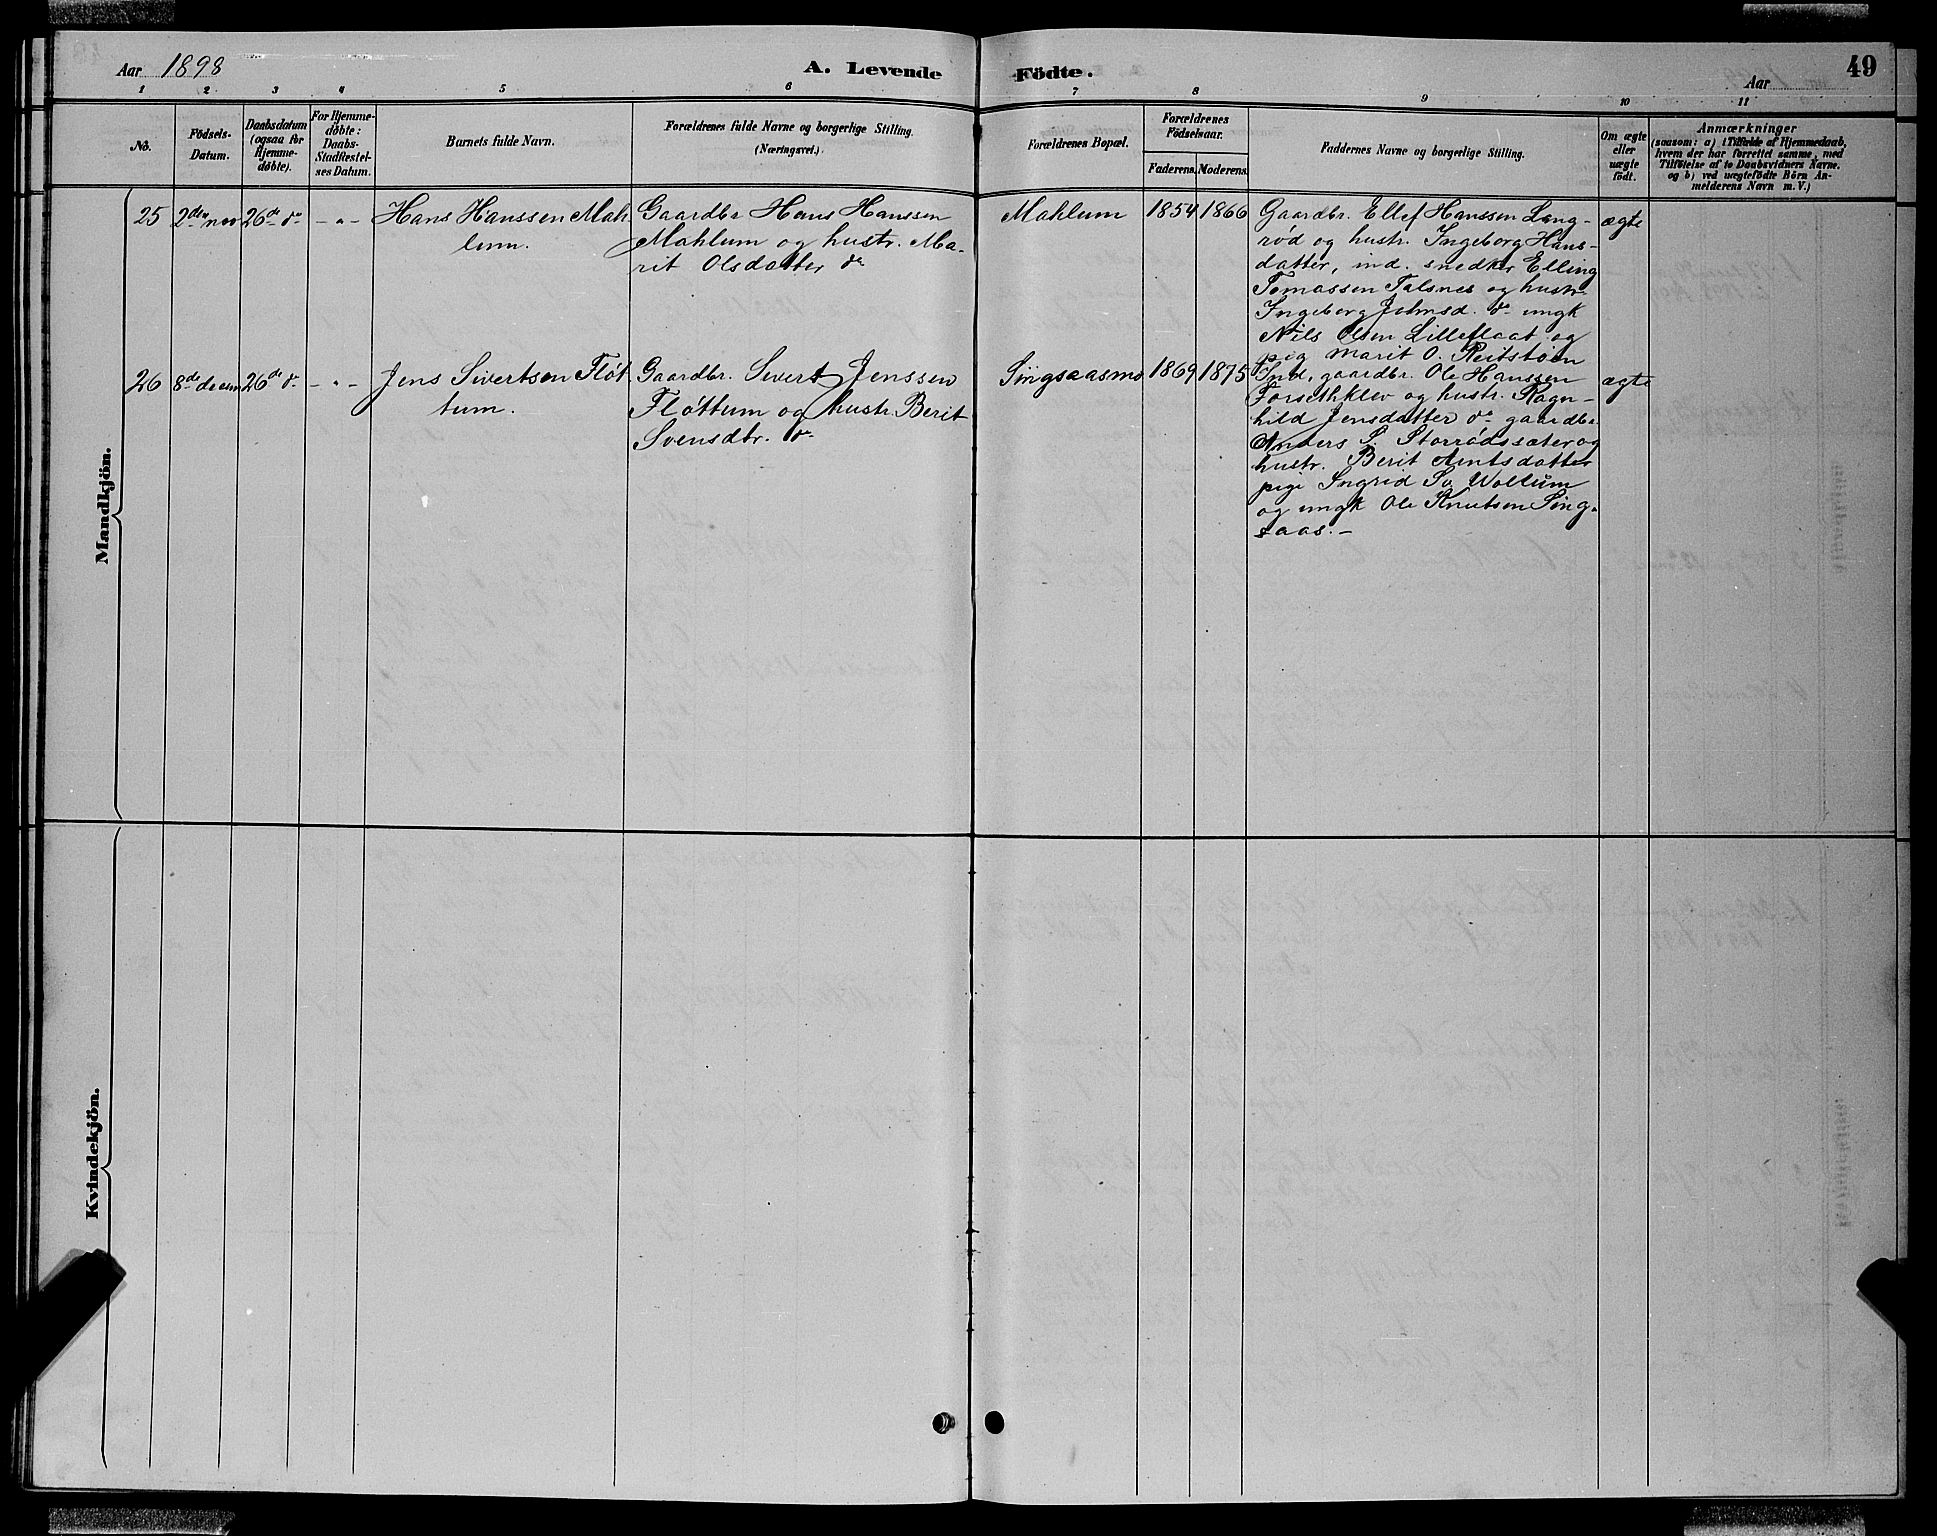 Aar 1898
A. Levende
Födte.
Aar
49
1 2 3 4 5 6 7 8 9 10 11
No.
Födsels-
Datum.
Daabsdatum
(ogsaa for
Hjemme-
døbte).
For Hjemme-
døbte:
Daabs-
Stadfæstel-
ses Datum.
Barnets fulde Navn.
Forældrenes fulde Navne og borgerlige Stilling.
(Næringsvei.)
Forældrenes Bopæl.
Forældrenes
Födselsaar.
Faderens. Moderens.
Faddernes Navne og borgerlige Stilling.
Om ægte
eller
uægte
födt.
Anmærkninger
(saasom: a) i Tilfælde af Hjemmedaab,
hvem der har forrettet samme, med
Tilföielse af to Daabsvidners Navne.
og b) ved uægtefödte Börn An-
melderens Navn m. V.)
Mandkjön.
25
2den nov
26de do
- " -
Hans Hanssen Mah
lum.
Gaardbr Hans Hanssen
Mahlum og hustr. Ma-
rit Olsdatter do
Mahlum
1854 1866
Gaardbr. Ellef Hanssen Lang-
rød og hustr. Ingeborg Hans-
datter, ind. snedker Elling
Tomassen Talsnes og hustr.
Ingeborg Johnsd. do ungk
Nils Olsen Lilleflaat og
pig Marit O. Reitstøen
ægte
26
8de decem
26de do
- " -
Jens Sivertsen Fløt
tum.
Gaardbr. Sivert Jenssen
Fløttum og hustr. Berit
Svensdtr. do
Singsaasmo
1869 1875
Ind, gaardbr. Ole Hanssen
Forsethklev og hustr. Ragn-
hild Jensdatter do gaardbr.
Anders S. Storrødssæter og
hustr. Berit Arntsdatter
pige Ingrid Sv Wollum
og ungk Ole Knutsen Sing-
saas. -
ægte
Kvindekjön.